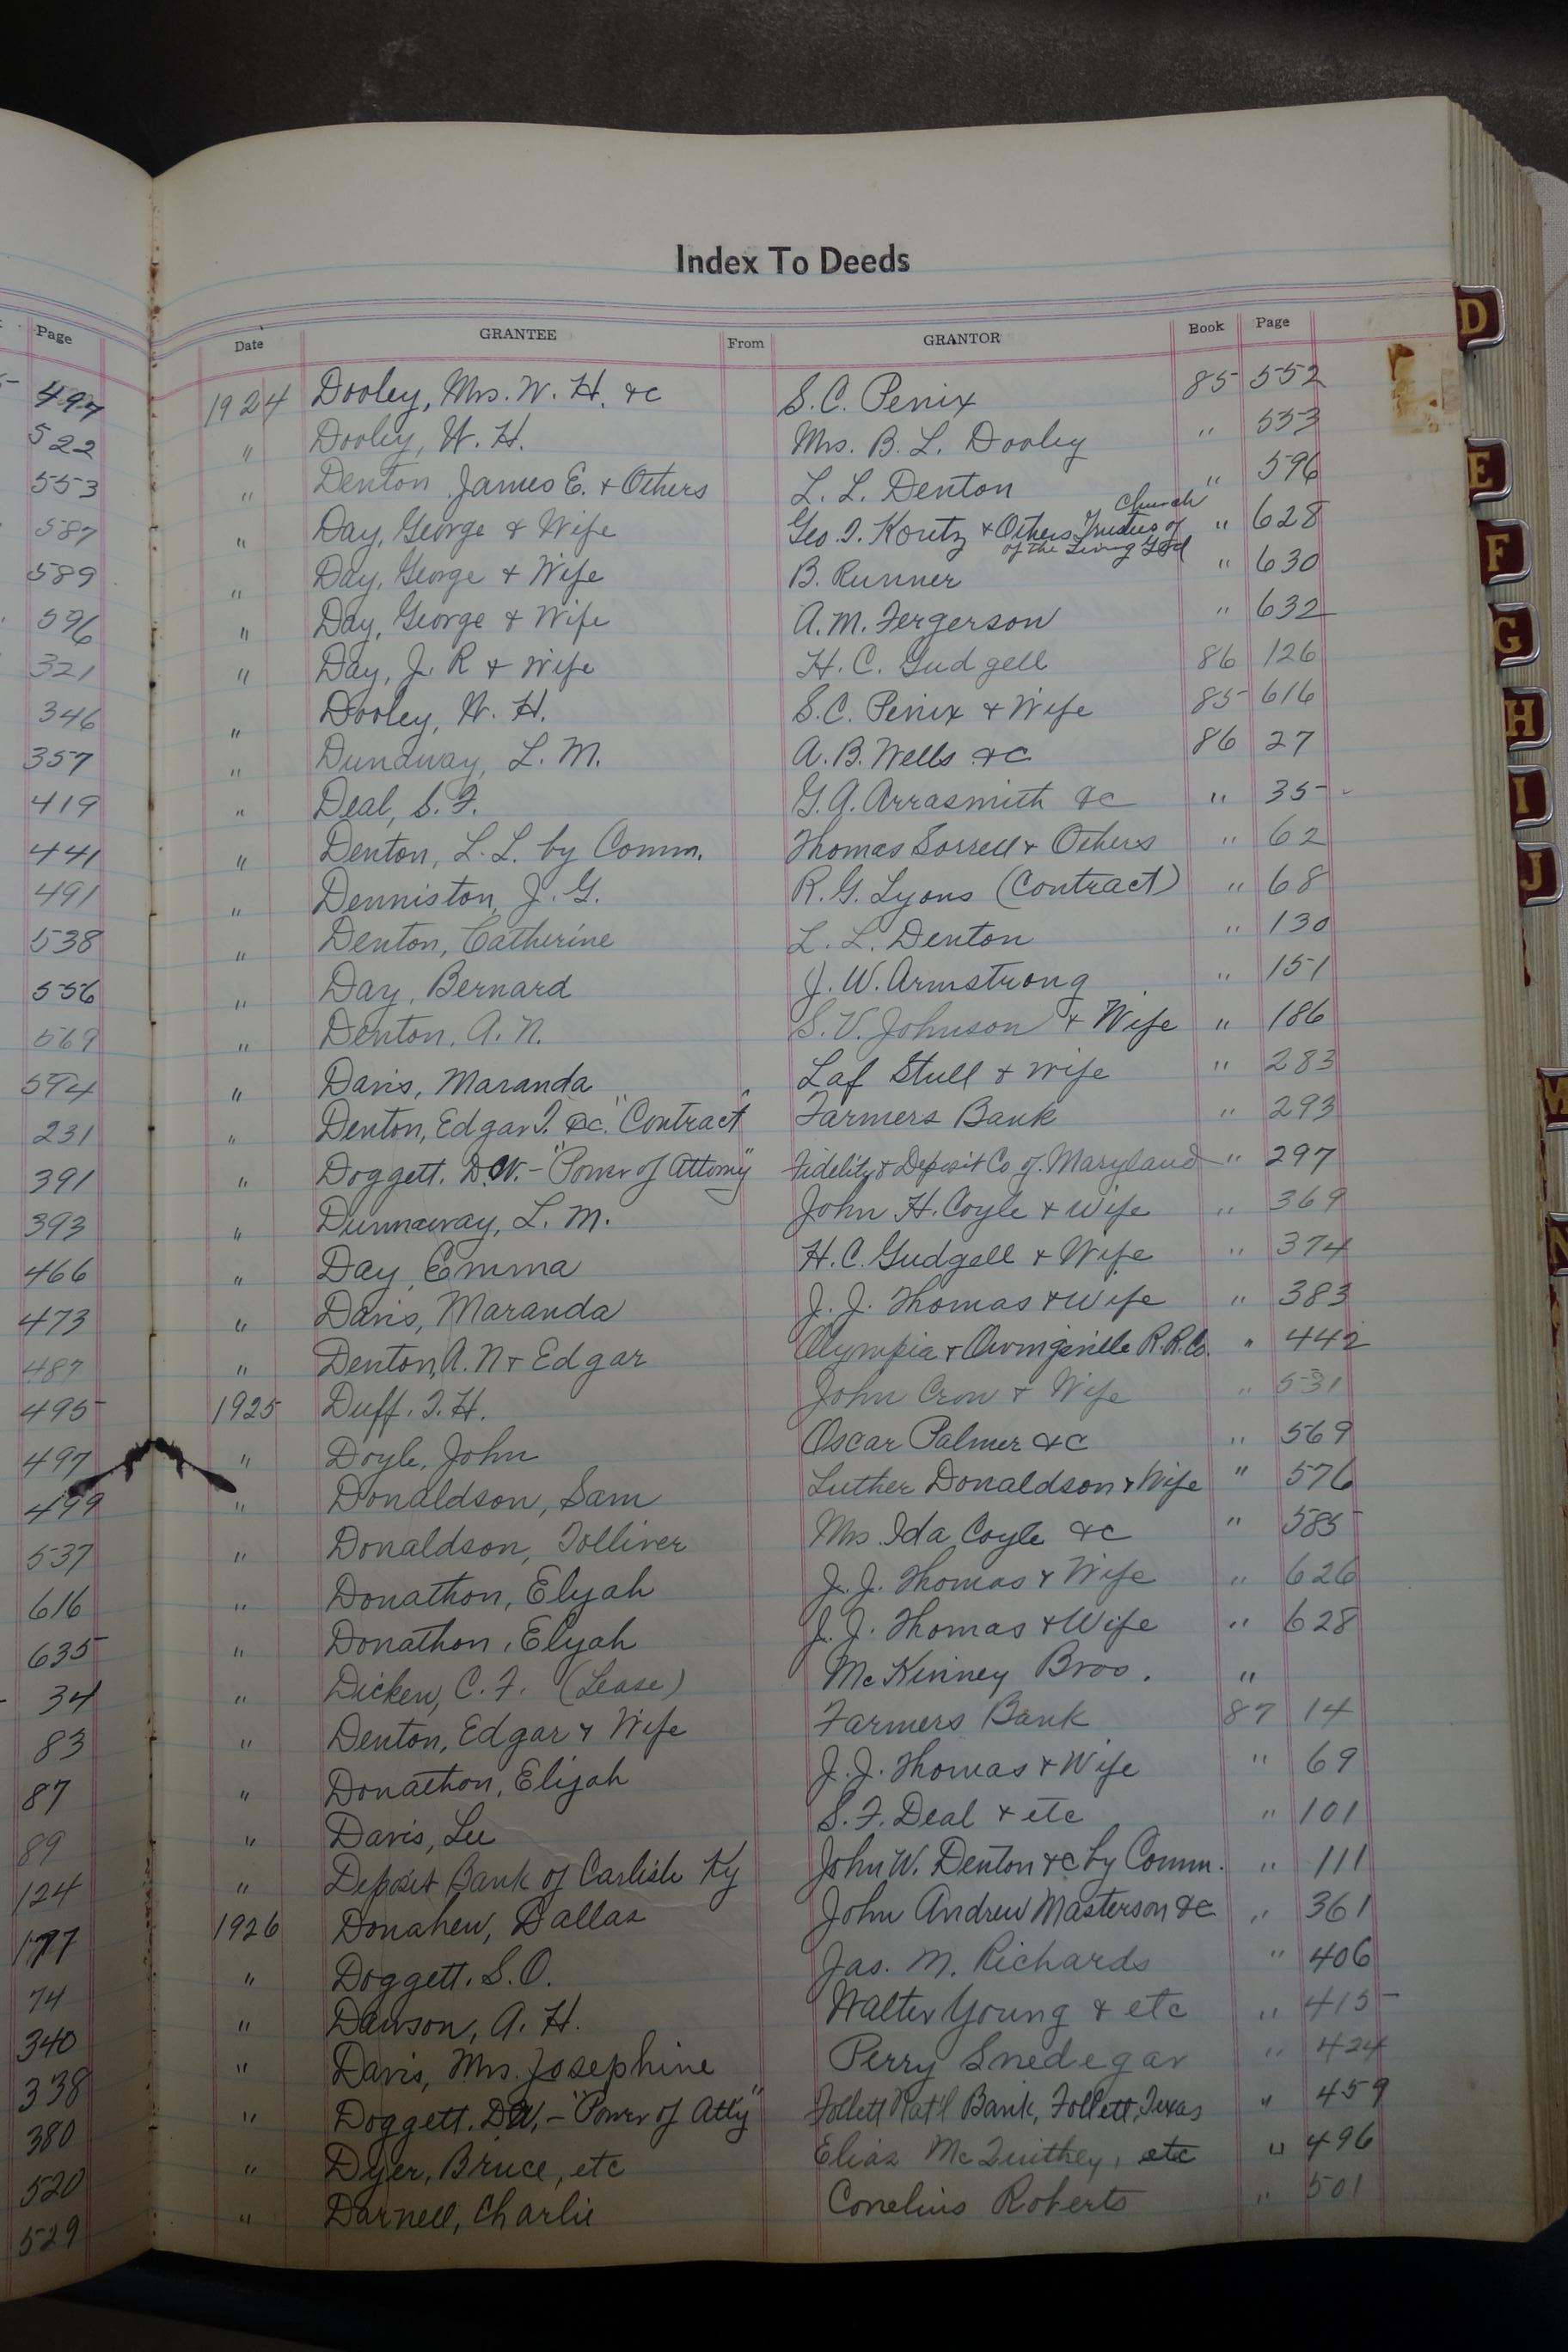 Index To Deeds
Page
Date GRANTEE From GRANTOR Book Page
497
522
553
587
589
596
321
346
357
419
441
491
538
556
569
594
231
391
393
466
473
487
495
497
499
537
616
635
34
83
87
89
124
177
74
340
338
380
520
529
1924 Dooley, Mrs. W. H. &c S. C. Penix 85 552
" Dooley, W. H. Mrs. B. L. Dooley " 553
" Denton James E. & Others L. L. Denton " 596
" Day, George & Wife Geo. T. Koutz & Others Trustees of Church of the Living God " 628
" Day, George & Wife B. Runner " 630
" Day, George & Wife A. M. Fergerson " 632
" Day, J. R & Wife H. C. Gudgell 86 126
" Dooley, W. H. S. C. Penix & Wife 85 616
" Dunaway, L. M. A. B. Wells &c 86 27
" Deal, S. F. G. A. Arrasmith &c " 35
" Denton, L. L. by Comm. Thomas Sorrell & Others " 62
" Denniston, J. G. R. G. Lyons (Contract) " 68
" Denton, Catherine L. L. Denton " 130
" Day, Bernard J. W. Armstrong " 151
" Denton, A. N. S. V. Johnson & Wife " 186
" Davis, Maranda Laf Stull & Wife " 283
" Denton, Edgar T. &c. "Contract" Farmers Bank " 293
" Doggett. D. W. - "Power of Attorny" Fidelity & Deposit Co of. Maryland " 297
" Dunnaway, L. M. John H. Coyle & Wife " 369
" Day, Emma H. C. Gudgell & Wife " 374
" Davis, Maranda J. J. Thomas & Wife " 383
" Denton, A. N & Edgar Olympia & Owingsville R.R. Co. " 442
1925 Duff. T. H. John Crow & Wife " 531
" Doyle, John Oscar Palmer &c " 569
" Donaldson, Sam Luther Donaldson & Wife " 576
" Donaldson, Tolliver Mrs. Ida Coyle &c " 585
" Donathon, Elyah J. J. Thomas & Wife " 626
" Donathon, Elyah J. J. Thomas & Wife " 628
" Dicken, C. F. (Lease) McKinney Bros. "
" Denton, Edgar & Wife Farmers Bank 87 14
" Donathon, Elijah J. J. Thomas & Wife " 69
" Davis, Lee S. F. Deal & etc " 101
" Deposit Bank of Carlisle Ky John W. Denton &c by Comm. " 111
1926 Donahew, Dallas John Andrew Masterson &c " 361
" Doggett. S. O. Jas. M. Richards " 406
" Dawson, A. H. Walter Young & etc " 415
" Davis, Mrs. Josephine Perry Snedegar " 424
" Doggett. D. W. - "Power of Atty" Follett Nat'l Bank, Follett, Texas " 459
" Dyer, Bruce, etc Elias McQuithey, etc " 496
" Darnell, Charlie Conelius Roberts " 501
D
E
F
G
H
I
J
N